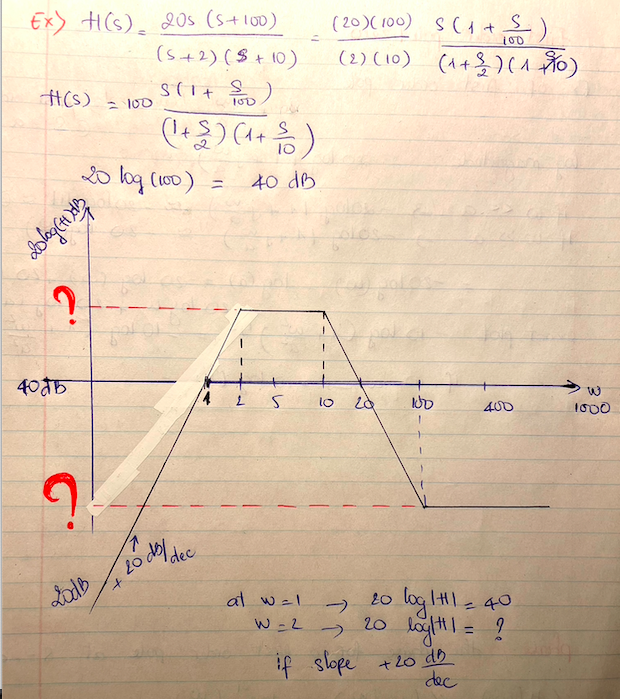 Ex> H(s) = 20s (s+100) / (s+2)(s+10) = (20)(100) / (2)(10) s(1 + s/100) / (1+s/2)(1+s/10)
H(s) = 100 s(1 + s/100) / (1+s/2)(1+s/10)
20 log(100) = 40 dB
20log(H)dB
?
40dB
1 2 5 10 20 100 400 1000
w
?
20dB
+20 dB/dec
at w=1 → 20 log|H| = 40
w=2 → 20 log|H| = ?
if slope +20 dB/dec